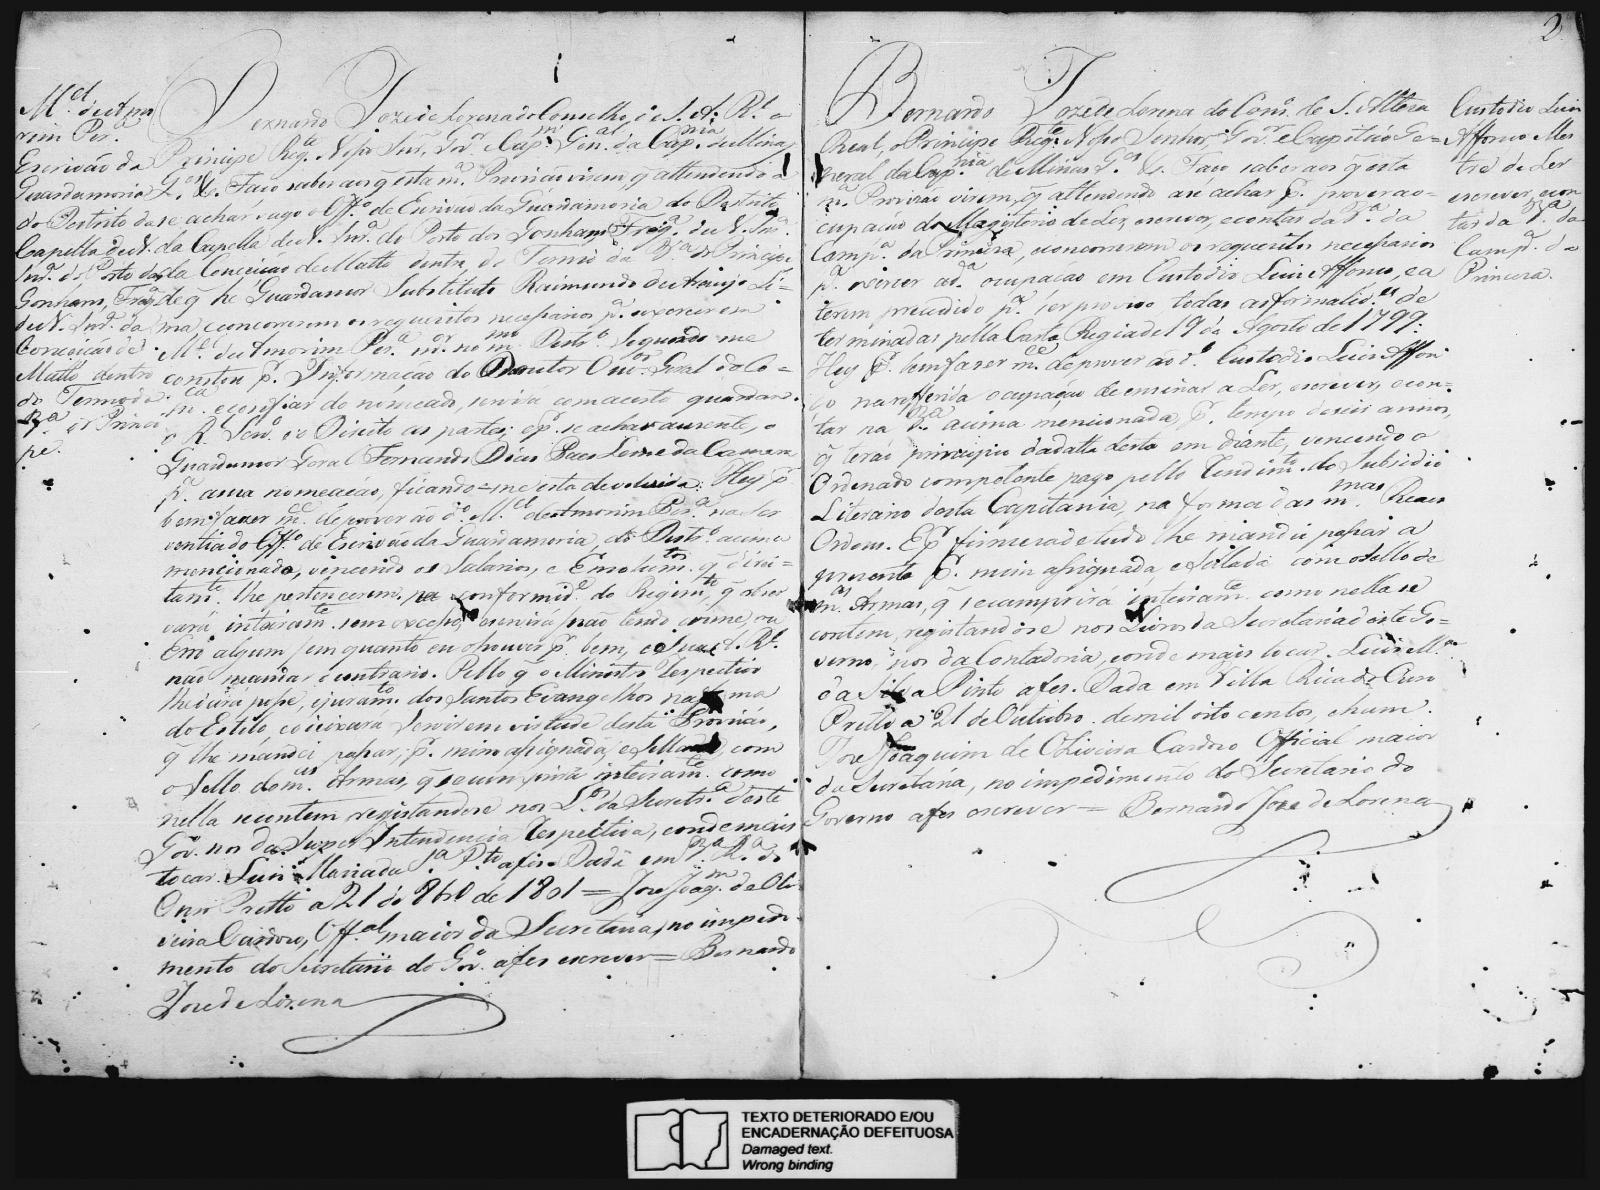 M.el de Amo
rim Per.a
Escrivão da
Guardamoria
do Destrito da
Capella de N.
Snr.a do Porto dos
Gonhams, Freg.a
de N. Snr.a da
Conceição do
Matto dentro
do Termo da
V.a do Princi
pe.
Bernardo Jozé de Lorena do Conselho de S. A. R.l o
Principe Reg.te N. Snr., Gov.or e Cap.m Gen.al da Cap.nia de Minas
G.es &. Faço saber aos q esta m.a Provizão virem, q attendendo a
se achar vago o Off.o de Escrivão da Guardamoria do Destrito
da Capella de N. Snr.a do Porto dos Gonhams Freg.a de N. Snr.a
da Conceição do Matto dentro do Termo da V.a do Principe
de q he Guardamor Substituto Raimundo de Araujo Li-
ma e concorrerem os requezitos necessarios p.a exercer em
M.el de Amorim Per.a m.or no m.mo Destr.o segundo me
constou p. Informação do Doutor Ouv.or Geral da Co-
m.ca e confiar do nomeado, sirva com acerto guardan-
o R. Serv.o e o Direito as partes; e p. se achar auzente, o
Guardamor Geral Fernando Dias Paes Leme da Camara
p.a a sua nomeação, ficando-me esta devolvida: Hey p.
bem fazer m.ce de prover ao d.o M.el de Amorim Per.a na ser
ventia do Off.o de Escrivão da Guardamoria, do Destr.o acima
mencionado, vencendo os Salarios, e Emolum.tos q direi-
tam.te lhe pertencerem, na conformid.e do Regim.to, q obser
vará inteiram.te sem excesso, e servirá (não tendo crime, ou
Erro algum) em quanto eu o houver p. bem, e Sua A. R.l
não mandar o contrario. Pello q o Ministro respectivo
lhe dará posse, e juram.to dos Santos Evangelhos na forma
do Estilo, e o deixará servir em virtude desta Provizão,
q lhe mandei passar, p. mim assignada, e Sellada com
o Sello de m.as Armas, q se cumprirá inteiram.te como
nella se contem registandose nos L.os da Secretr.a deste
Gov.o nos da Super Intendencia respectiva, e onde mais
tocar. Luis Maria da S.a P.to a fes. Dada em V.a R.a do
Ouro Pretto a 21 de 8br.o de 1801 = Jose Joaq.m de Oli
veira Cardozo, Off.al maior da Secretaria, no impedi-
mento do Secretario do Gov.o a fes escrever = Bernardo
Jozé de Lorena
2
Custodio Luis
Affonso Mes
tre de Ler
escrever, e con
tar da V.a da
Camp.a da
Princeza.
Bernardo Jozé de Lorena do Cons.o de S. Alteza
Real, o Principe Reg.te Nosso Senhor, Gov.or e Capitão Ge-
neral da Cap.nia de Minas G.es &. Faço saber aos q esta
m.a Provizão virem, q attendendo a se achar p. prover a o-
cupação do Magisterio de Ler, escrever, e contar da V.a da
Camp.a da Princeza, e concorrerem os requezitos necessarios
p.a exercer a d.a ocupação em Custodio Luis Affonso, e a
terem precedido p.a ser provido todas as formalid.es de
terminadas pella Carta Regia de 19 de Agosto de 1799:
Hey p. bem fazer m.ce de prover ao d.o Custodio Luis Affon
so na referida ocupação de ensinar a Ler, escrever, e con-
tar na V.a acima mencionada p. tempo de seis annos,
q terão principio da datta desta em diante, vencendo o
Ordenado competente pago pello rendim.to do Subsidio
Literario desta Capitania, na forma das m.mas Reaes
Ordens. E p. firmeza de tudo lhe mandei passar a
prezente p. mim assignada, e Sellada com o Sello de
m.as Armas, q se cumprirá inteiram.te como nella se
contem, registandose nos Livros da Secretaria deste Go-
verno, nos da Contadoria, e onde mais tocar. Luis M.a
da Silva Pinto a fes. Dada em Villa Rica do Ouro
Pretto a 21 de Outubro de mil oito centos, e hum.
Jose Joaquim de Oliveira Cardozo Official maior
da Secretaria, no impedimento do Secretario do
Governo a fes escrever = Bernardo Joze de Lorena
TEXTO DETERIORADO E/OU
ENCADERNAÇÃO DEFEITUOSA
Damaged text.
Wrong binding